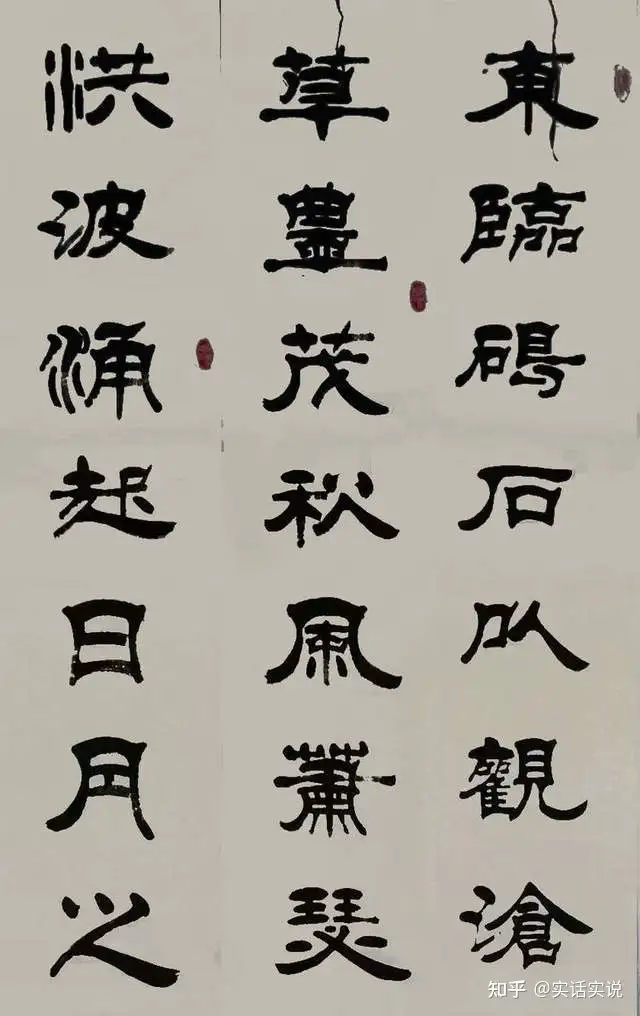 東臨碣石以觀滄
草豊茂秋風蕭瑟
洪波涌起日月之
知乎 @实话实说